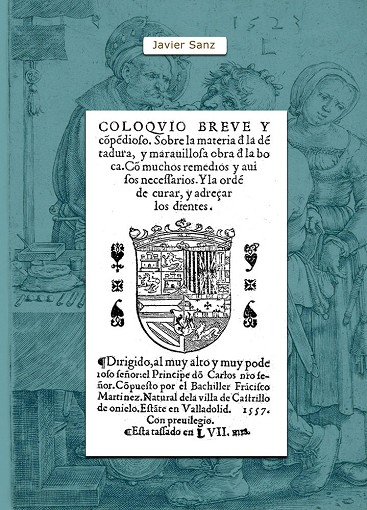 Javier Sanz
COLOQVIO BREVE Y
cõpẽdioso. Sobre la materia đ la dẽ
tadura, y marauillosa obra đ la bo
ca. Cõ muchos remedios y aui
sos necessarios. Y la ordẽ
de curar, y adreçar
los dientes.
¶Dirigido, al muy alto y muy pode
roso señor: el Principe dõ Carlos nro se-
ñor. Cõpuesto por el Bachiller Frãcisco
Martinez. Natural dela villa de Castrillo
de onielo. Estãte en Valladolid. 1557.
Con preuilegio.
¶Esta tassado en LVII. mrs.